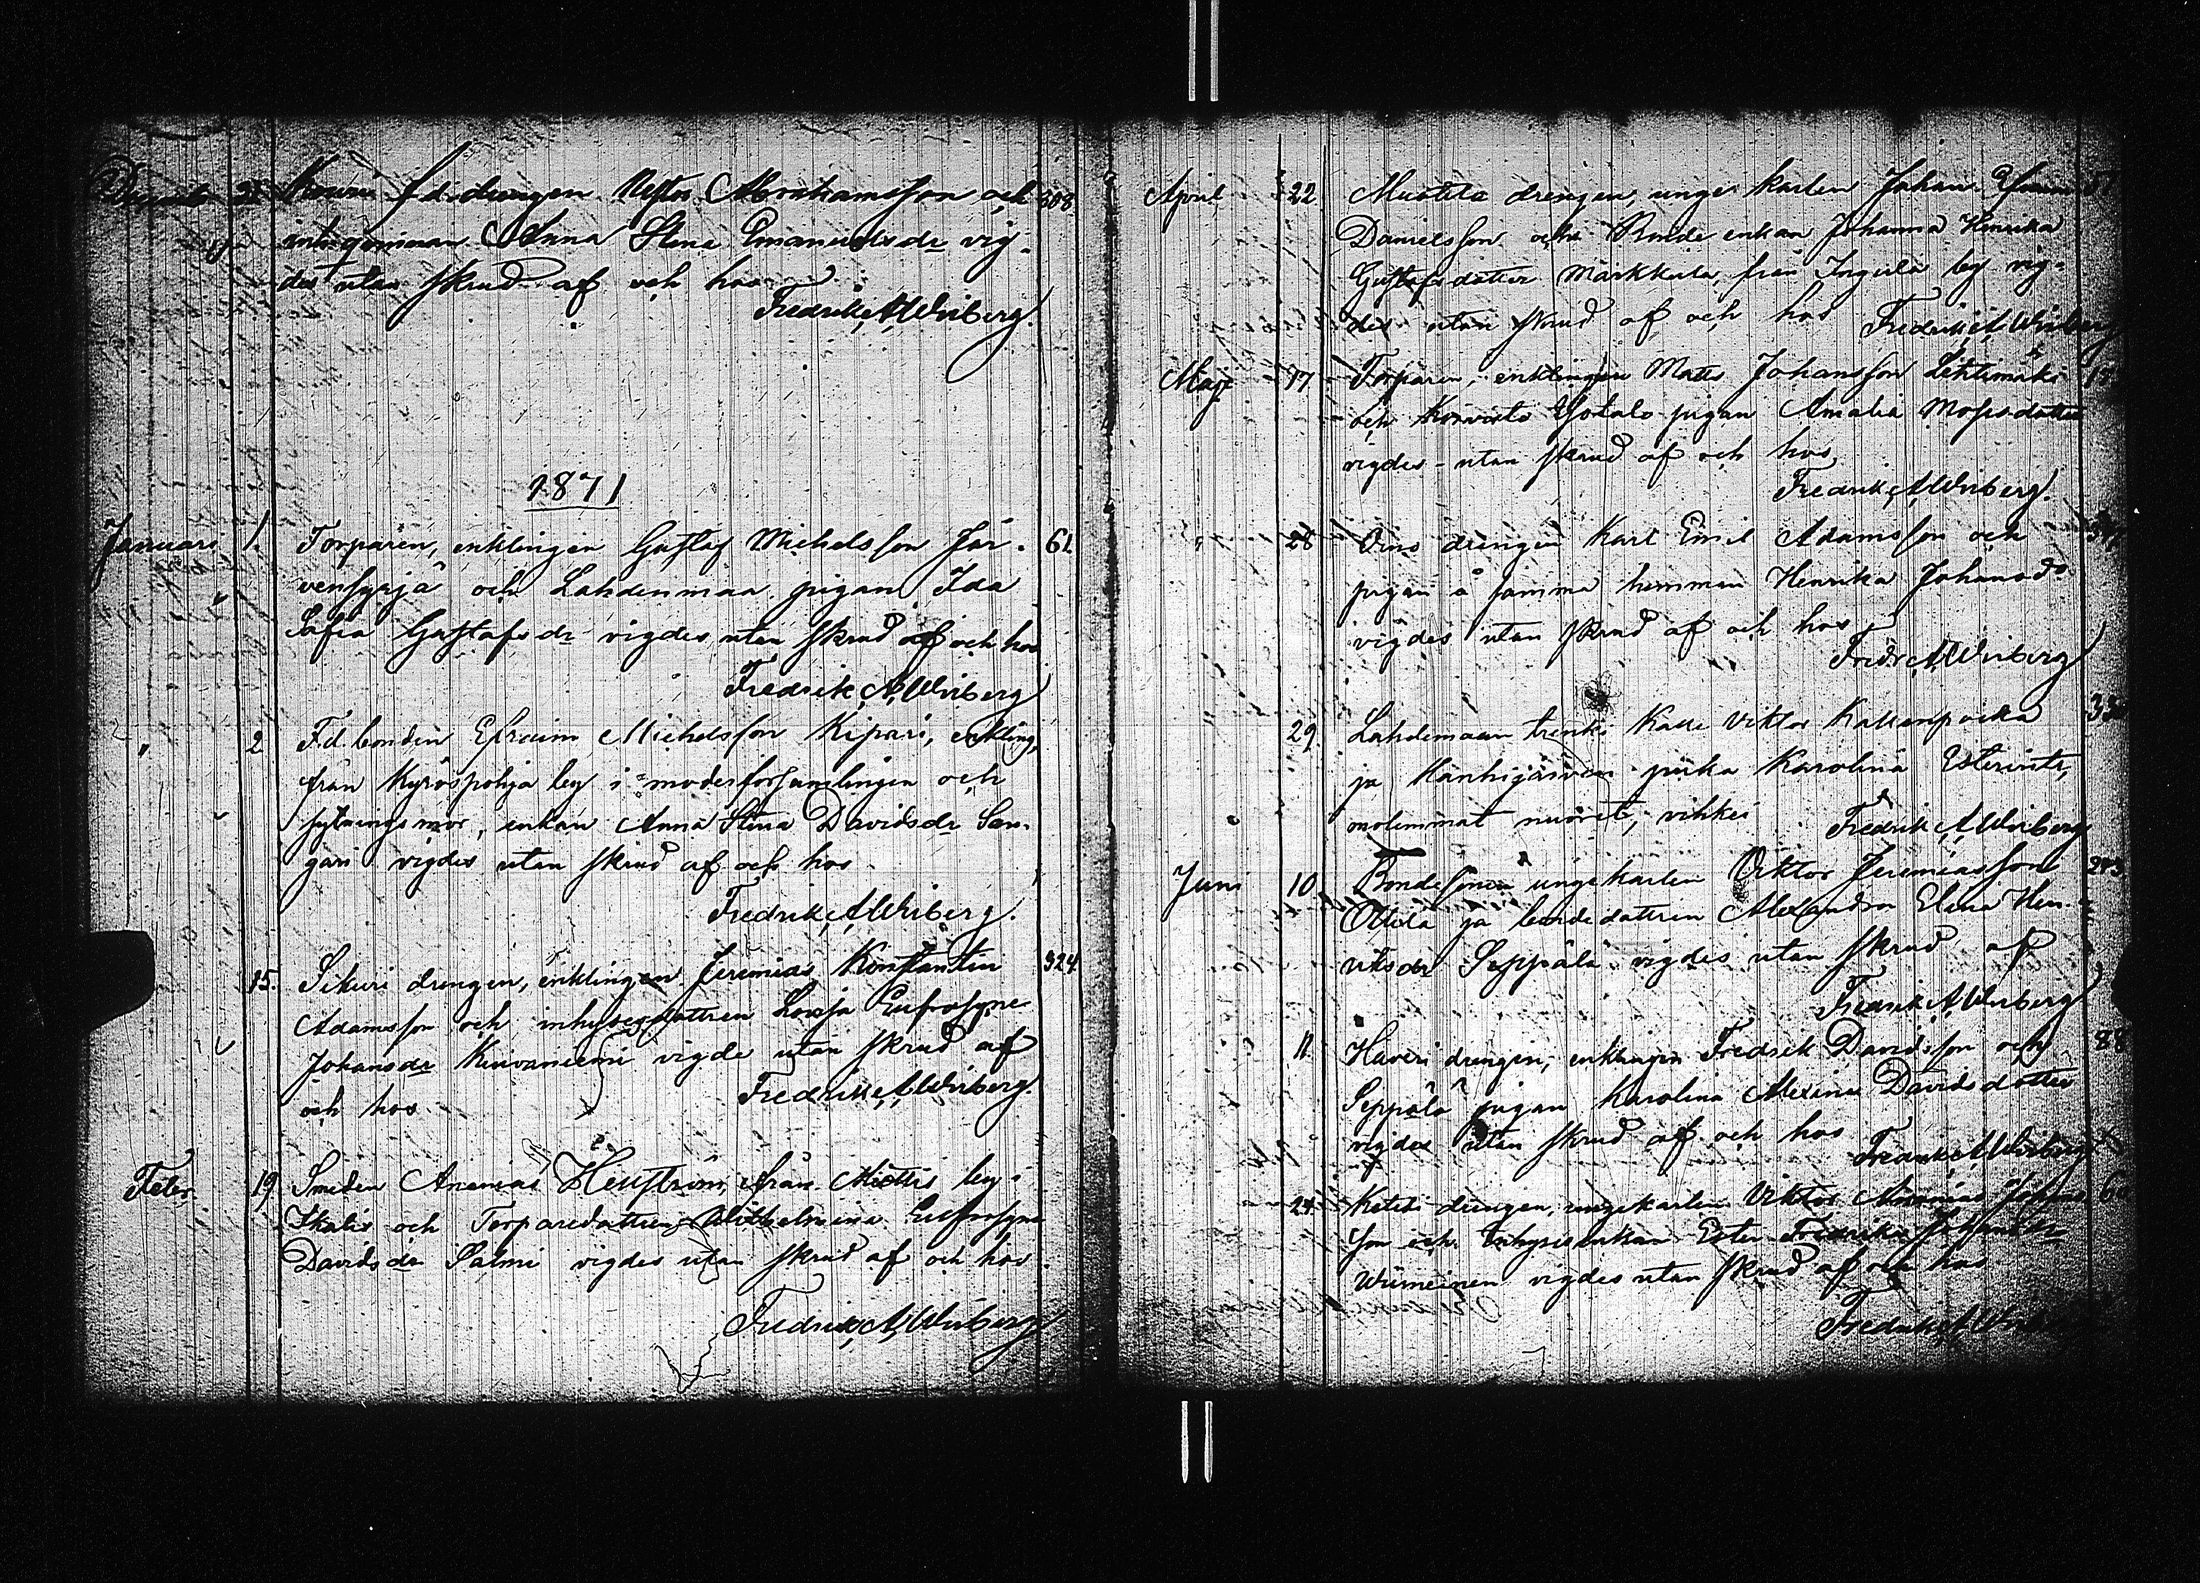 Decemb 31 Kouri f.d. drengen Nestor Abrahamsson och 308
inhysepigan Anna Stina Emanuelsdr vig-
des utan skrud af och hos
Fredrik A Wriberg.
1871
Januari 1. Torparen, enklingen Gustaf Michelsson Jär- 61
vensyrjä och Lahdenmaa pigan Ida
Sofia Gustafsdr vigdes utan skrud af och hos
Fredrik A Wriberg
" 2 F.d. bonden Efraim Michelsson Kipari, enkling,
från Kyröspohja by i moderförsamlingen och
sytningsmor, enkan Anna Stina Davidsdr San-
gari vigdes utan skrud af och hos
Fredrik A Wriberg.
15. Sikuri drengen, enklingen Jeremias Konstantin 324
Adamsson och inhysesdottren Lovisa Eufrosyne
Johansdr Kuivaniemi vigde utan skrud af
och hos Fredrik A Wriberg.
Febr. 19 Smeden Ananias Hellström från Miettis by i
Ikalis och Torparedottren Wilhelmina Eufrosyne
Davidsdr Salmi vigdes utan skrud af och hos
Fredrik A Wriberg
April 22 Mustila drengen, unge karlen Johan
Danielsson och Bonde enkan Johanna Henrika
Gustafsdotter Markkula, från Ingula by vig-
des utan skrud af och hos Fredrik A Wriberg
Maji 17 Torparen, enklingen Mats Johansson Lehtimäki
och Kovesto Yotalo pigan Amalia Mosisdotter
vigdes utan skrud af och hos
Fredrik A Wriberg.
" 28 Oins drengen Karl Emil Adamsson och
pigan å samma hemman Henrika Johansdr
vigdes utan skrud af och hos
Fredr A Wriberg
" 29 Lahdenmaan trenki Kalle Viktor Kallenpoika
ja Kankijärven piika Karolina Esterintr,
molemmat nuoret, vihkei Fredrik A Wriberg
Juni 10 Bondesonen ungekarlen Viktor Jeremiasson 273
Ollila ja bondedottren Alexandra Elina Hen-
riksdr Seppälä vigdes utan skrud af
Fredrik A Wriberg
11 Haveri drengen, enklingen Fredrik Davidsson och 88
Seppälä pigan Karolina Alexina Davidsdotter
vigdes utan skrud af och hos Fredrik A Wriberg
24 drengen, ungekarlen Viktor Ananias Johans-
son och Inhysesenkan Ester Fredrika Johansdr
vigdes utan skrud af och hos
Fredrik A Wriberg